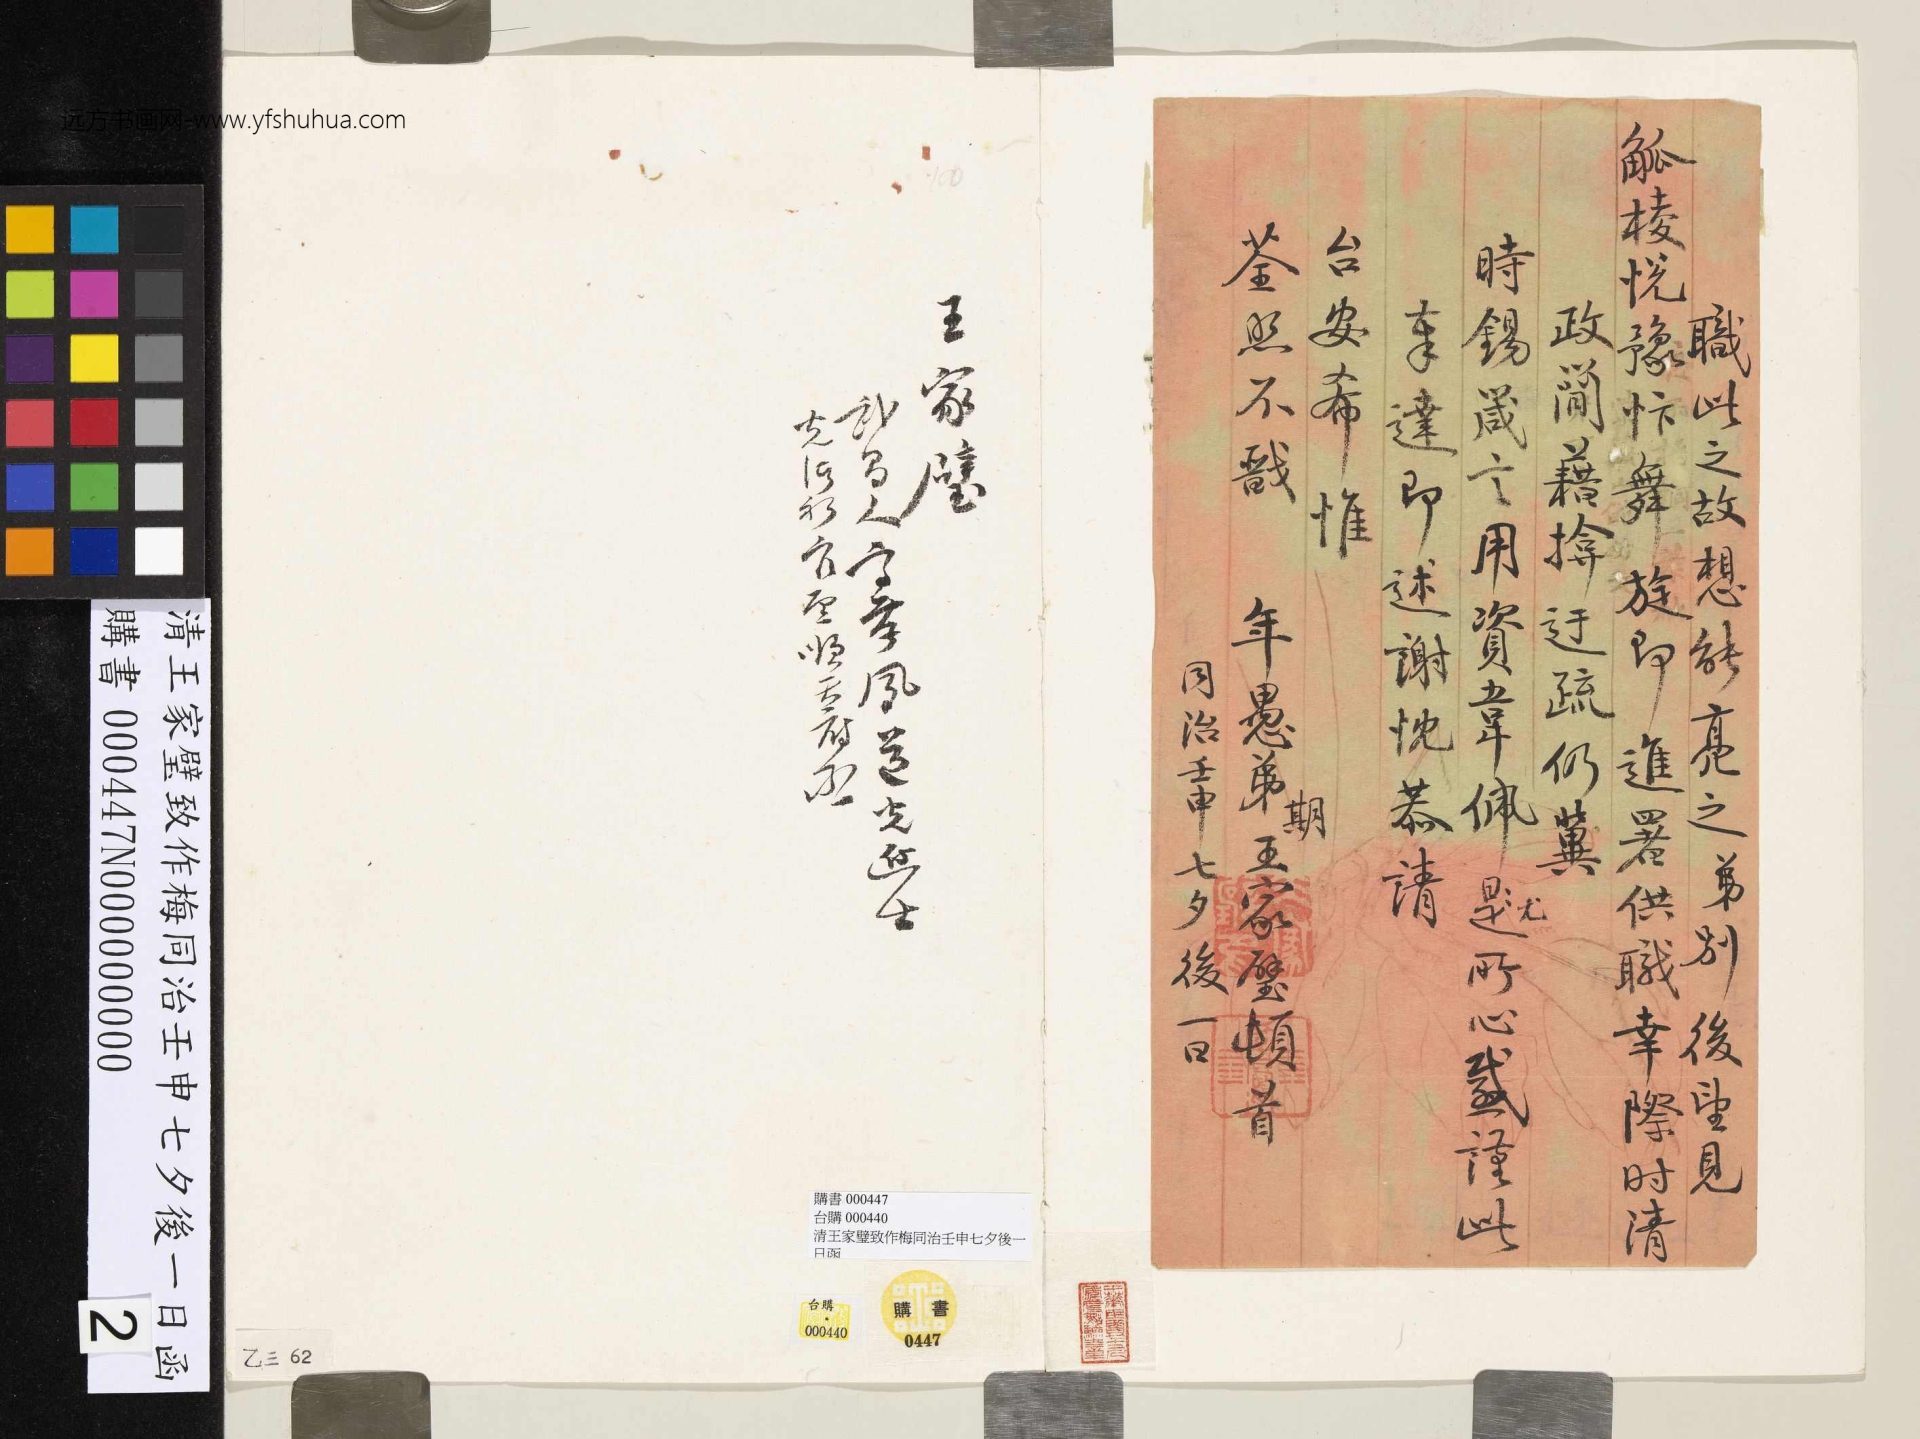 職此之故想能亮之弟別後望見
觚棱悅豫忭舞旋即進署供職幸際时清
政簡藉揜迂疏仍冀
時錫箴言用資韋佩是尤所心感謹此
奉達即述謝忱恭請
台安希惟
荃照不戩
年愚弟期王家璧頓首
同治壬申七夕後一日
王家璧
武昌人字孝鳳道光進士
光緒初官至順天府丞
購書 000447
台購 000440
清王家璧致作梅同治壬申七夕後一
日函
台購
000440
購書
0447
乙三 62
清王家璧致作梅同治壬申七夕後一日函
購書 000447N000000000
2
远方书画网-www.yfshuhua.com